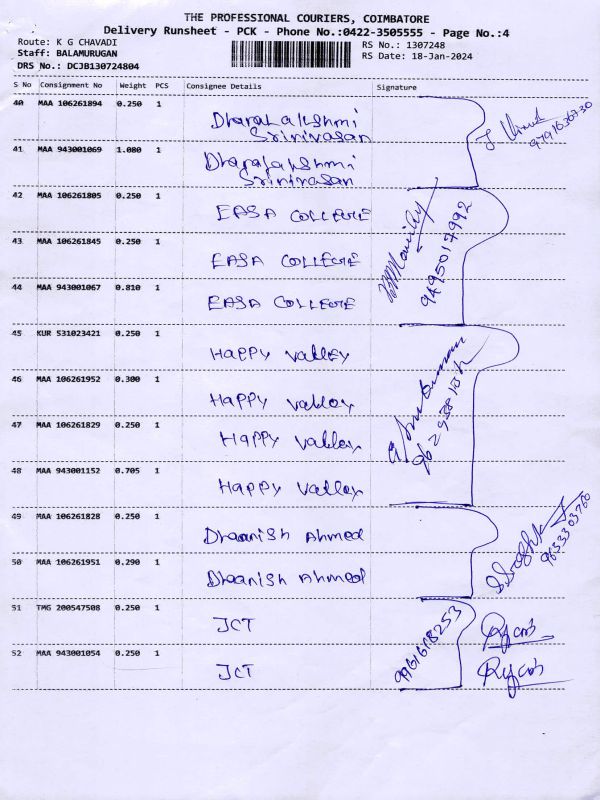 THE PROFESSIONAL COURIERS, COIMBATORE
Delivery Runsheet - PCK - Phone No.:0422-3505555 - Page No.:4
Route: K G CHAVADI
Staff: BALAMURUGAN
DRS No.: DCJB130724804
RS No.: 1307248
RS Date: 18-Jan-2024
S No Consignment No Weight PCS Consignee Details Signature
40 MAA 106261894 0.250 1
Dharalakshmi
Srinivasan
41 MAA 943001069 1.080 1
Dharalakshmi
Srinivasan
42 MAA 106261805 0.250 1 EASA COLLEGE
43 MAA 106261845 0.250 1 EASA COLLEGE
9495017992
44 MAA 943001067 0.810 1 EASA COLLEGE
45 KUR 531023421 0.250 1 Happy valley
46 MAA 106261952 0.300 1 Happy valley
47 MAA 106261829 0.250 1 Happy valley
48 MAA 943001152 0.705 1 Happy valley
49 MAA 106261828 0.250 1 Dhaanish Ahmed
50 MAA 106261951 0.290 1 Dhaanish Ahmed
51 TMG 200547508 0.250 1 JCT
52 MAA 943001054 0.250 1 JCT